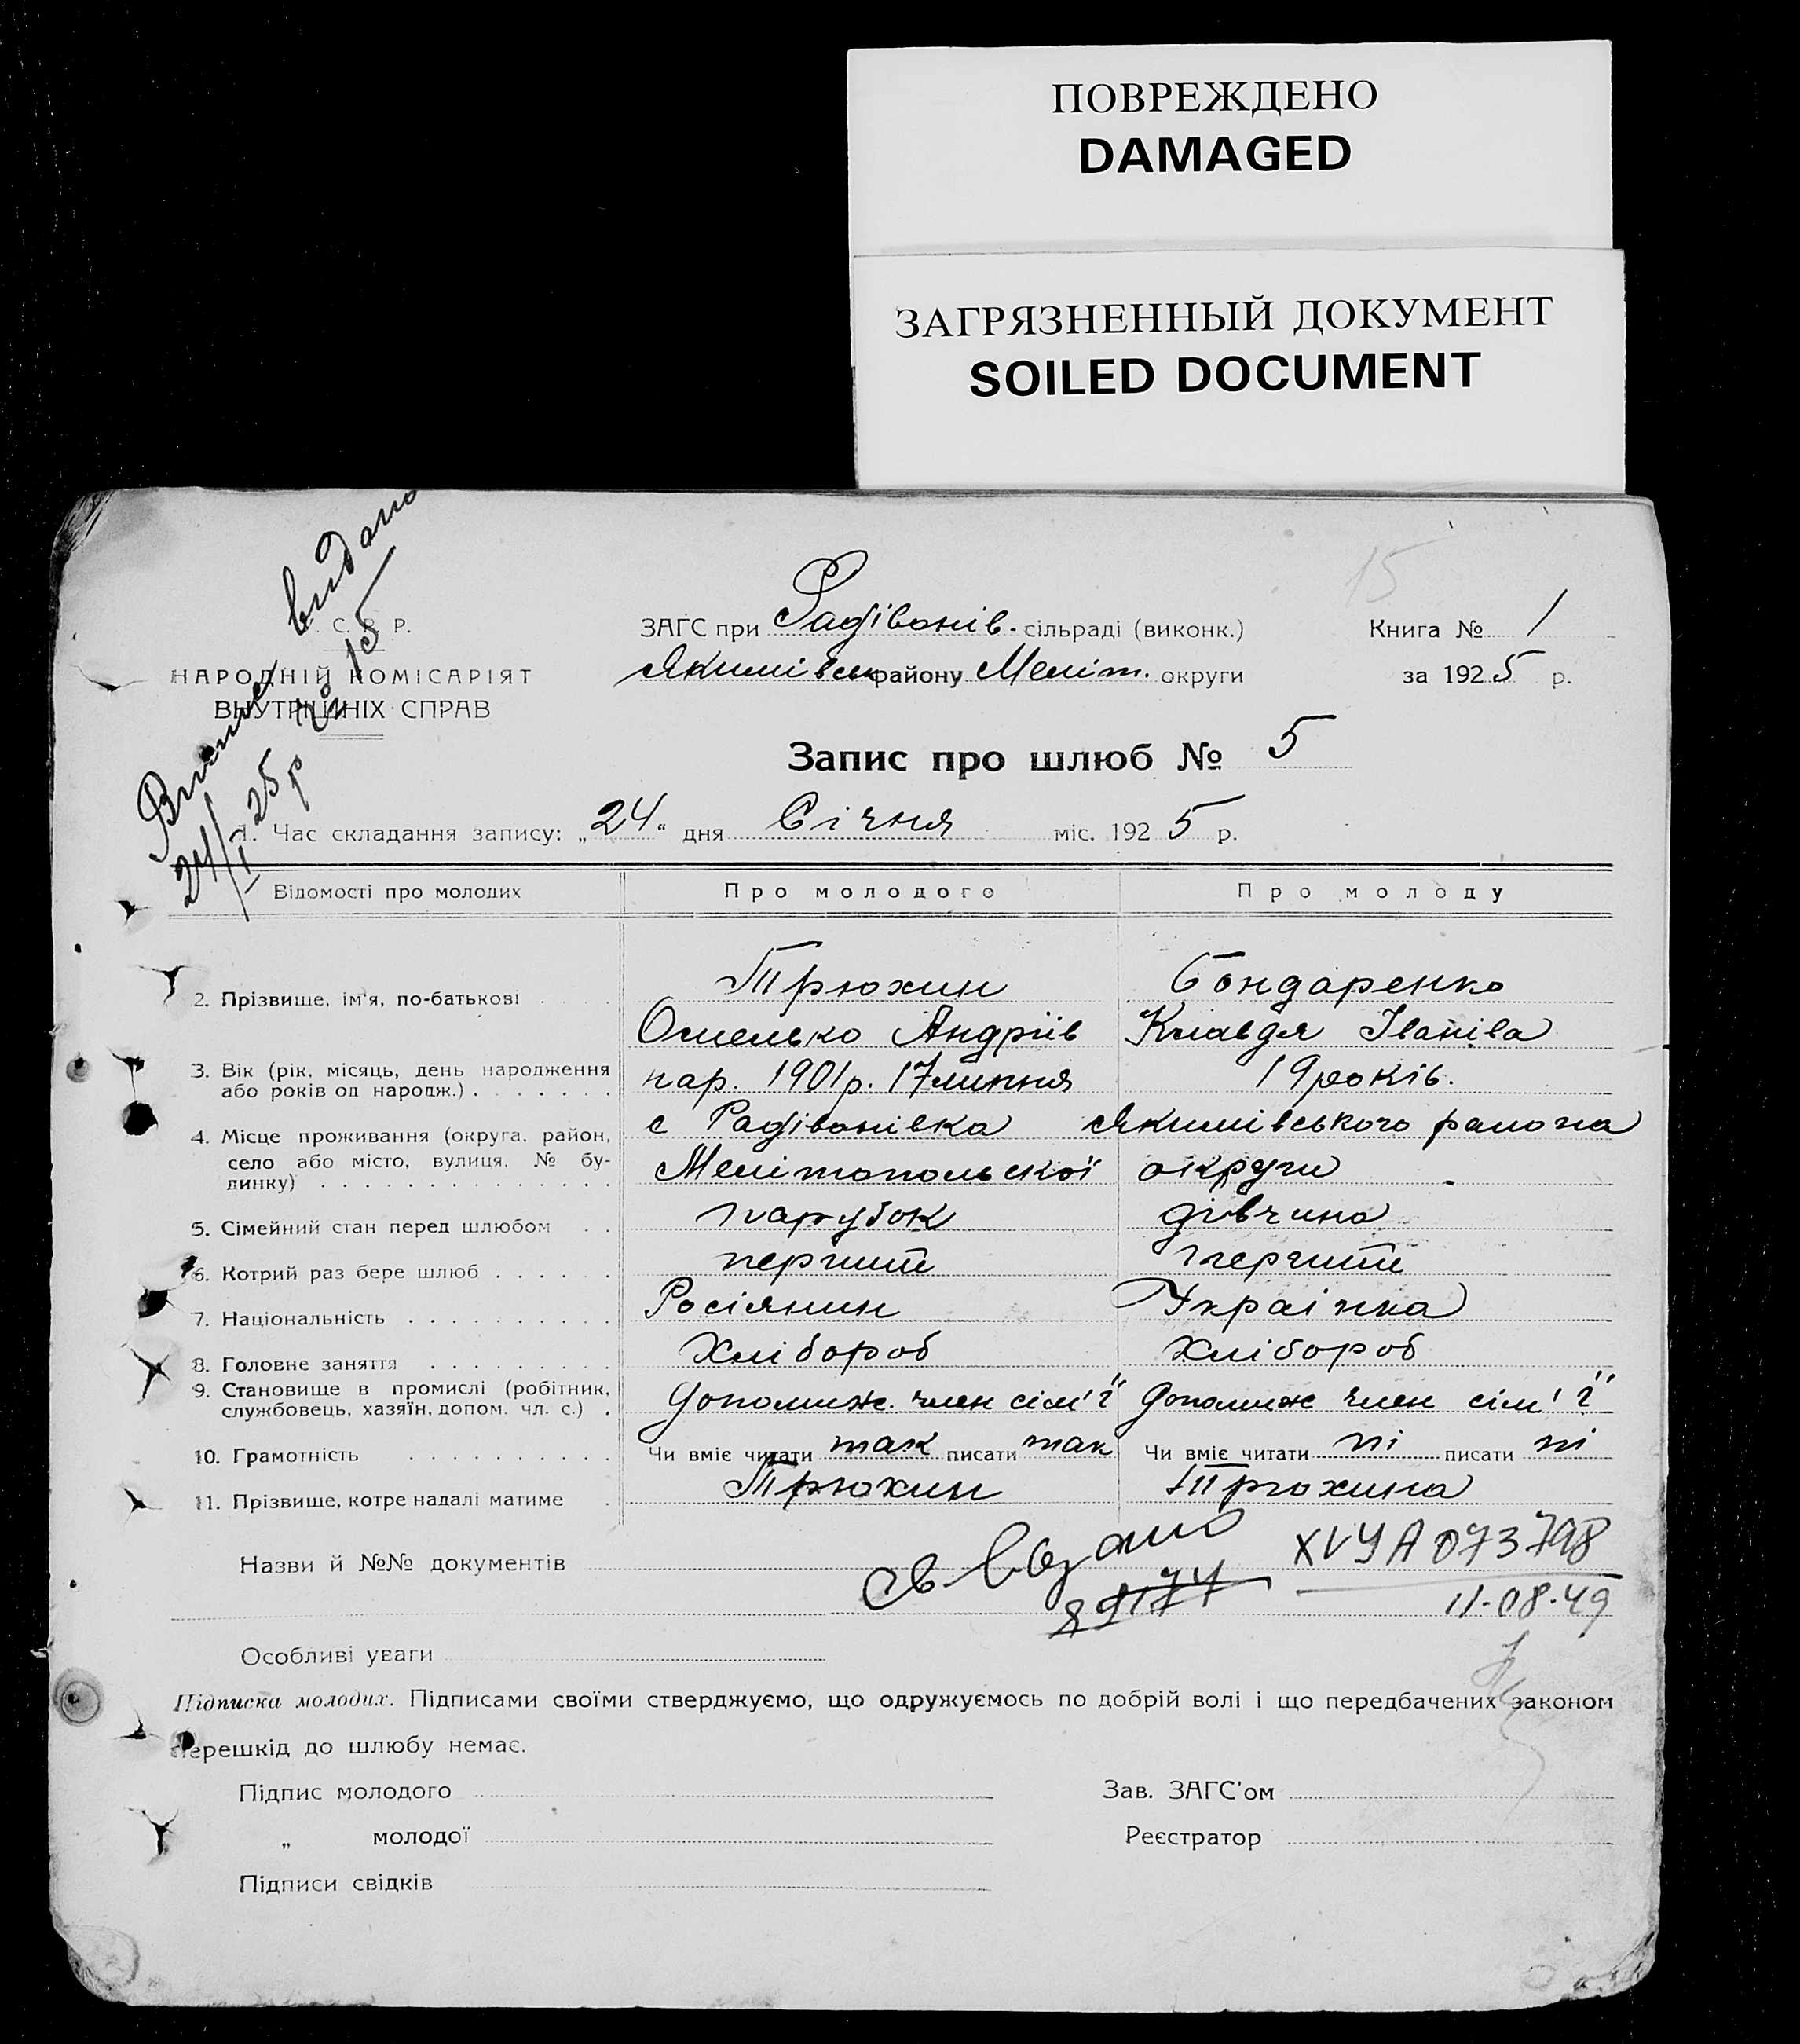 ПОВРЕЖДЕНО
DAMAGED
ЗАГРЯЗНЕННЫЙ ДОКУМЕНТ
SOILED DOCUMENT
видано
15
С. Р. Р.
НАРОДНІЙ КОМІСАРІЯТ
ВНУТРІШНІХ СПРАВ
№ 15
24/I 25 р
ЗАГС при Радівонів. сільраді (виконк.)
Якимівськ району Меліт. округи
Книга № 1
за 1925 р.
Запис про шлюб № 5
1. Час складання запису: „24“ дня Січня міс. 1925 р.
Відомості про молодих Про молодого Про молоду
2. Прізвище, ім'я, по-батькові Трюхин Бондаренко
Омелько Андріїв Клавдя Іванівa
3. Вік (рік, місяць, день народження або років од народж.) нар. 1901 р. 17 липня 19 років.
4. Місце проживання (округа, район, село або місто, вулиця, № будинку) с Радівонівка Якимівського района
Мелітопольскої округи
5. Сімейний стан перед шлюбом парубок дівчина
6. Котрий раз бере шлюб перший перший
7. Національність Росіянин Українка
8. Головне заняття Хлібороб Хлібороб
9. Становище в промислі (робітник, службовець, хазяїн, допом. чл. с.) допомиж. член сім'ї допомиж член сім'ї
10. Грамотність Чи вміє читати так писати так Чи вміє читати ні писати ні
11. Прізвище, котре надалі матиме Трюхин Трюхина
Назви й №№ документів
XVУА 073798
11-08-49
Особливі уваги
Підписка молодих. Підписами своїми стверджуємо, що одружуємось по добрій волі і що передбачених законом
перешкід до шлюбу немає.
Підпис молодого Зав. ЗАГС'ом
„ молодої Реєстратор
Підписи свідків